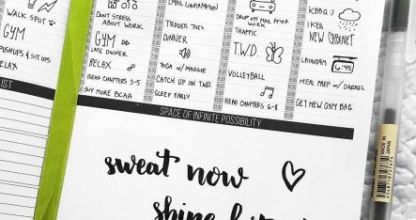 WALK SPOT
GYM
PUSHUPS & SIT UPS
RELAX
LIST
DON'T STRESS
ABOUT WORK
GYM
LATE DINNER
RELAX
READ CHAPTERS 3-5
BUY MORE BCAA
EMAIL CONFIRMATION
TRADER JOES
DINNER
YOGA W/ MAGGIE
CATCH UP ON TWD
SLEEP EARLY
DROP OFF MAIL AFTER
WORK
TRAFFIC
T.W.D.
VOLLEYBALL
READ CHAPTERS 6-8
BBQ @ J
IKEA
NEW CABINET
LAUNDRY
MEAL PREP W/ DARREL
GET NEW GYM BAG
SPACE OF INFINITE POSSIBILITY
sweat now
shine
MADE IN
JAPAN